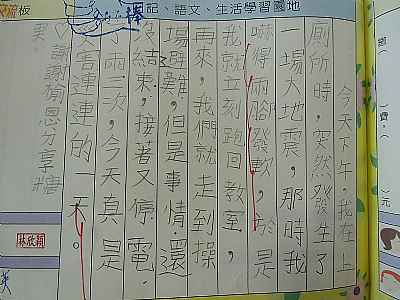 日記、語文、生活學習園地
今天下午,我在上
廁所時,突然發生了
一場大地震,那時我
嚇得兩腳發軟,於是
我就立刻跑回教室,
再來,我們就走到操
場避難,但是事情還
沒結束,接著又停電,
了兩三次,今天真是
災害連連的一天。
♡謝謝榆恩分享糖
果。
林欣穎